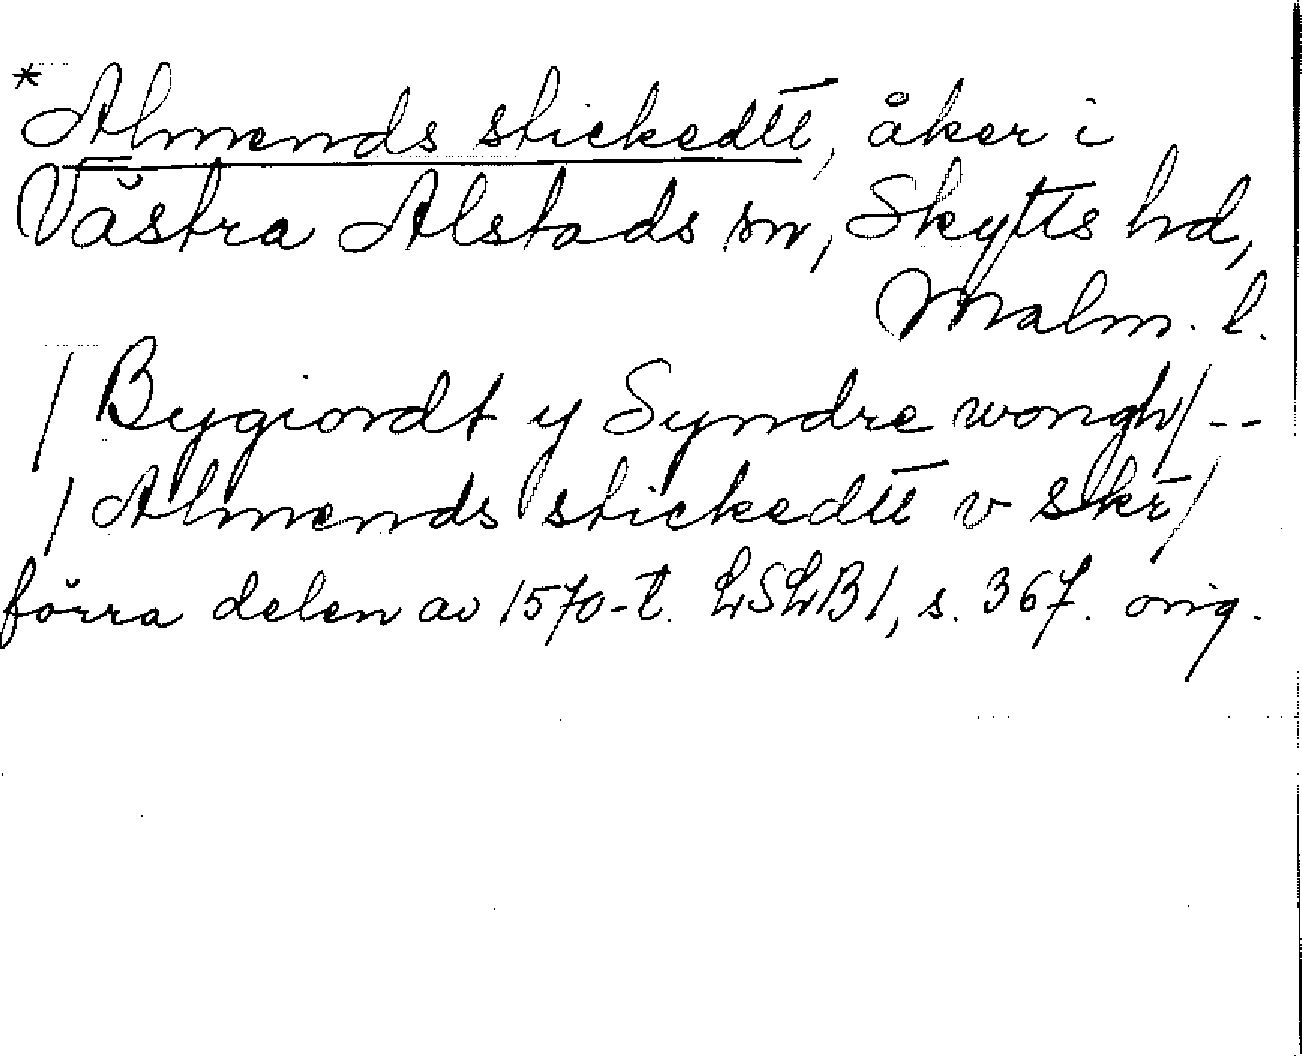 *Almends stickedtt, åker i
Västra Alstads sn, Skytts hd,
Malm. l.
/ Bygiordt y Syndre wongh / --
/ Almends stickedtt v skr /
förra delen av 1570-t. LSLB 1, s. 367. orig.